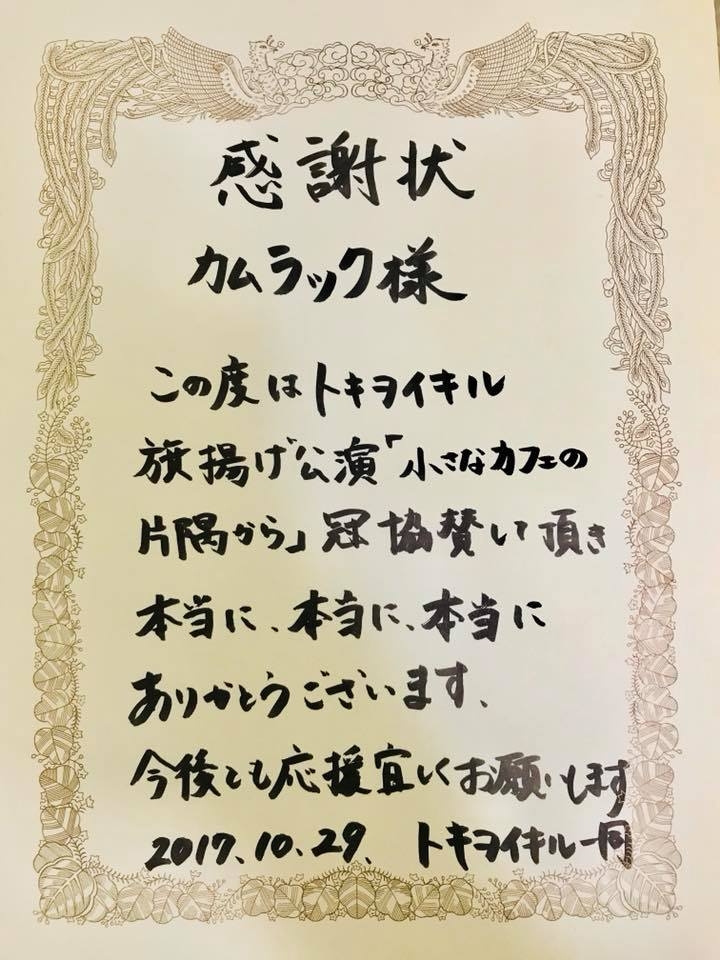 感謝状
カムラック様
この度はトキヲイキル
旗揚げ公演「小さなカフェの
片隅から」冠協賛い頂き
本当に、本当に、本当に
ありがとうございます、
今後とも応援宜しくお願いします
2017.10.29、トキヲイキル一同